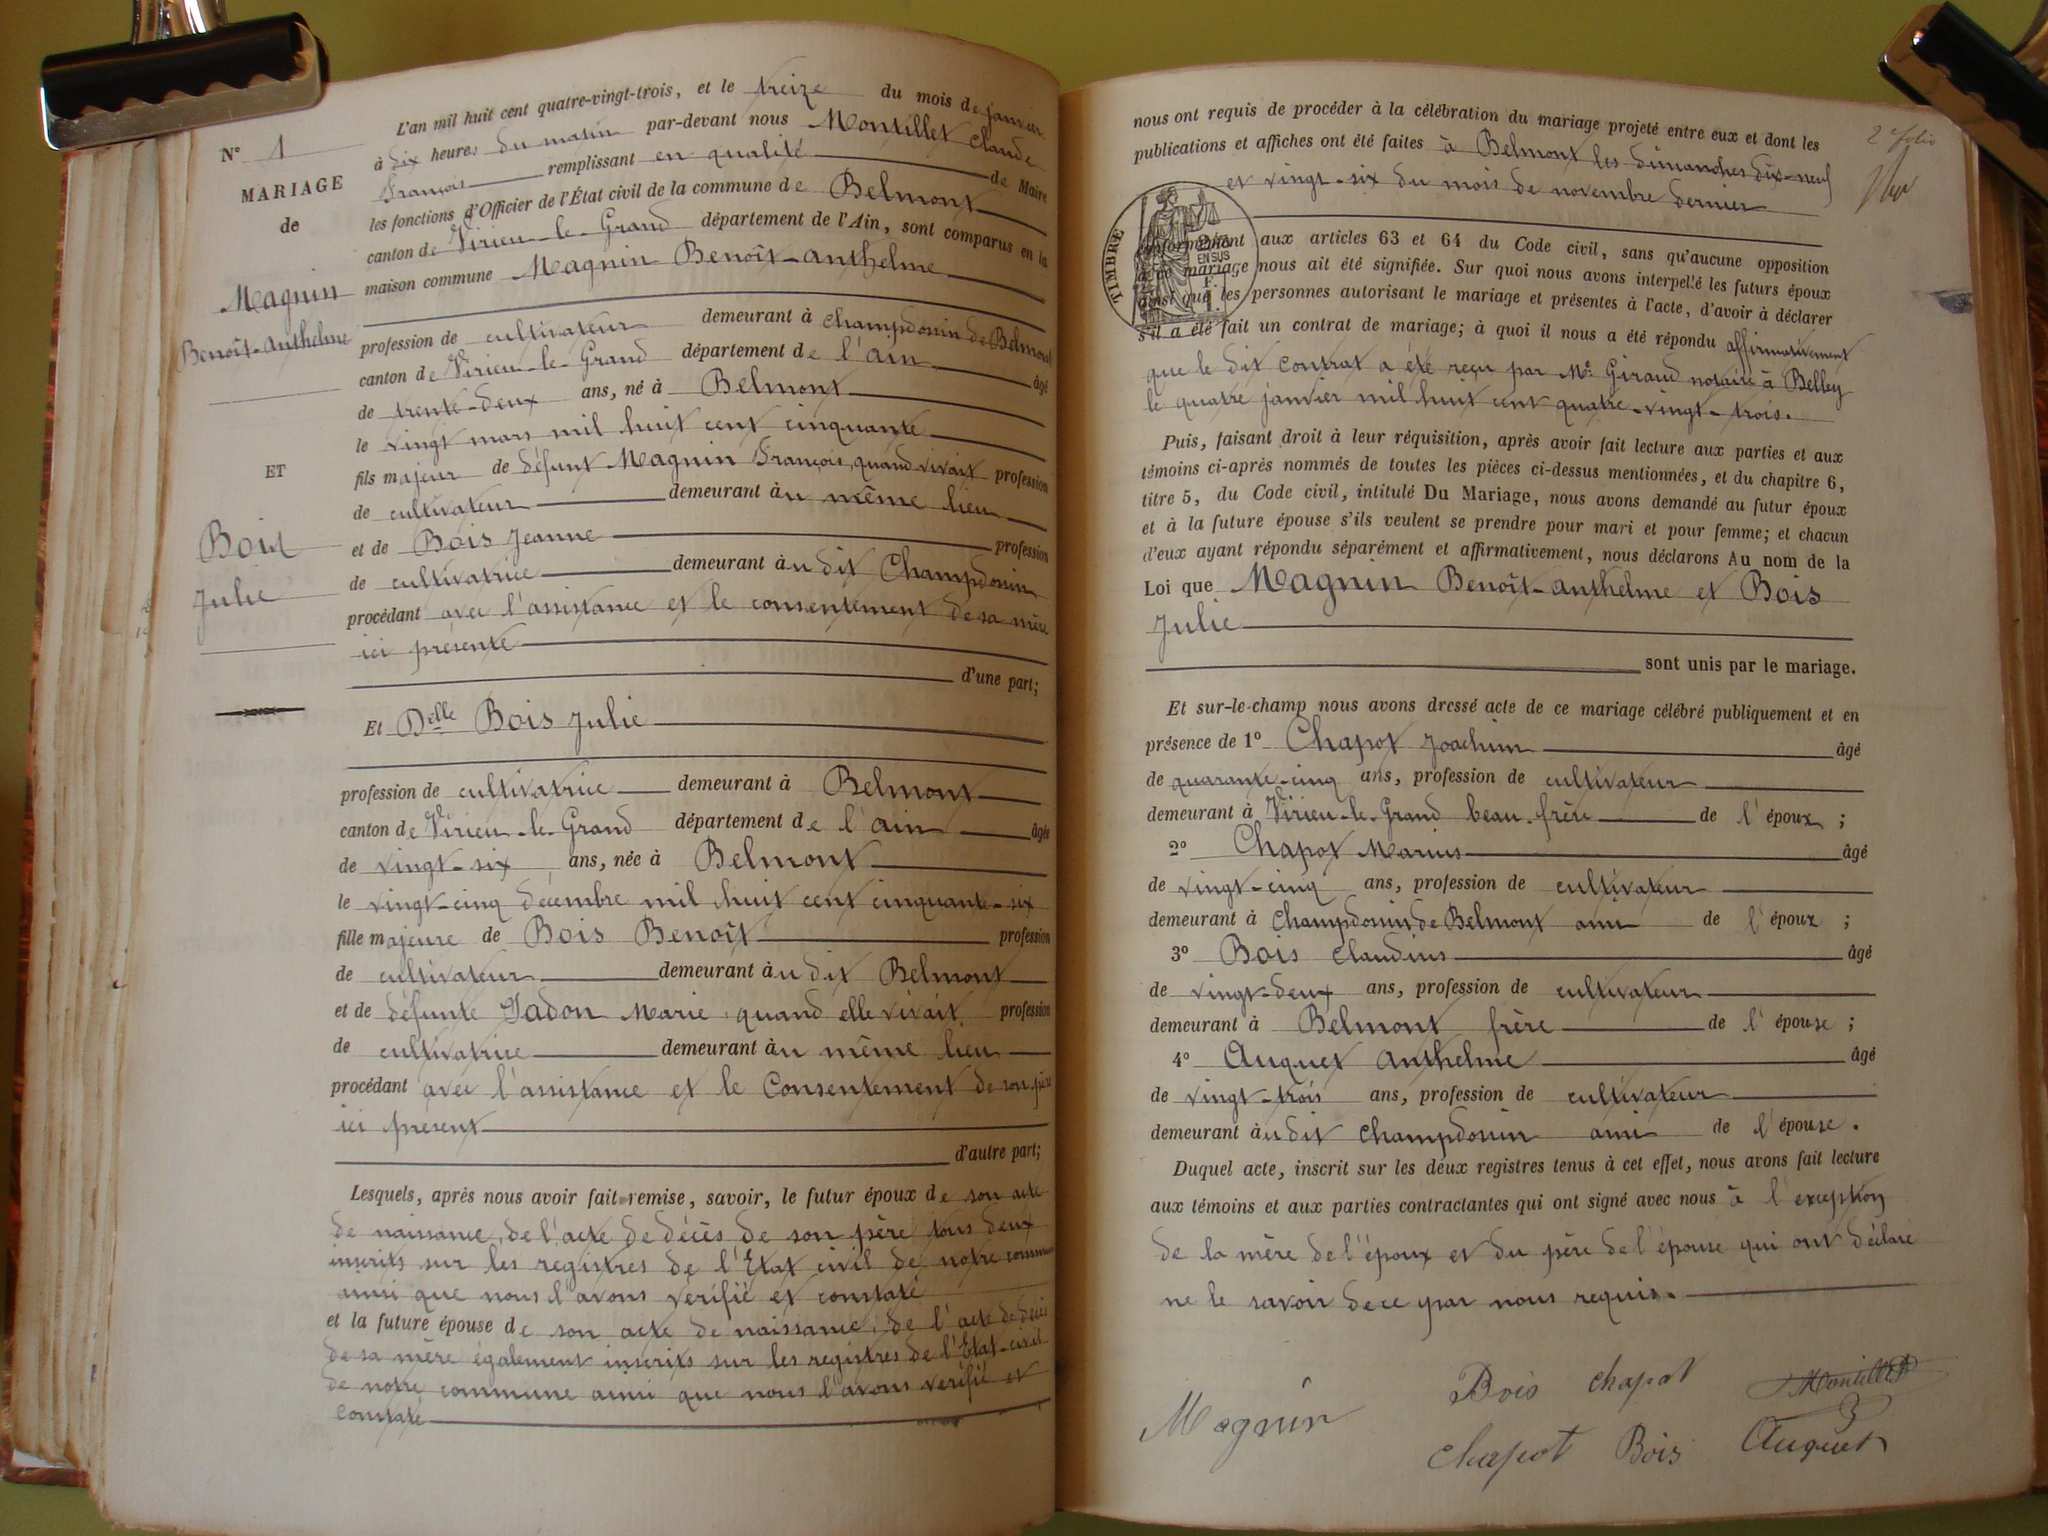 N° 1
MARIAGE
de
Magnin
Benoît-Anthelme
ET
Bois
Julie
L'an mil huit cent quatre-vingt-trois, et le treize du mois de janvier
à dix heures du matin par-devant nous Montillet Claude
François remplissant en qualité de Maire
les fonctions d'Officier de l'État civil de la commune de Belmont
canton de Virieu-le-Grand département de l'Ain, sont comparus en la
maison commune Magnin Benoît-Anthelme
profession de cultivateur demeurant à Champdossin de Belmont
canton de Virieu-le-Grand département de l'ain âgé
de trente-deux ans, né à Belmont
le vingt mars mil huit cent cinquante
fils majeur de défunt Magnin François, quand vivait profession
de cultivateur demeurant àu même lieu
et de Bois Jeanne profession
de cultivatrice demeurant àu dit Champdossin
procédant avec l'assistance et le consentement de sa mère
ici présente
d'une part;
Et Delle Bois Julie
profession de cultivatrice demeurant à Belmont
canton de Virieu-le-Grand département de l'ain âgée
de vingt-six ans, née à Belmont
le vingt-cinq décembre mil huit cent cinquante-six
fille majeure de Bois Benoît profession
de cultivateur demeurant àu dit Belmont
et de défunte Marie quand elle vivait profession
de cultivatrice demeurant àu même lieu
procédant avec l'assistance et le Consentement de son père
ici présent
d'autre part;
Lesquels, après nous avoir fait remise, savoir, le futur époux de son acte
de naissance, de l'acte de décès de son père tous deux
inscrits sur les registres de l'Etat civil de notre commune
ainsi que nous l'avons vérifié et constaté
et la future épouse de son acte de naissance, de l'acte de décès
de sa mère également inscrits sur les registres de l'Etat-civil
de notre commune ainsi que nous l'avons vérifié et
constaté
2e folio
nous ont requis de procéder à la célébration du mariage projeté entre eux et dont les
publications et affiches ont été faites à Belmont les dimanches dix-neuf
et vingt-six du mois de novembre dernier
TIMBRE
EN SUS
conformément aux articles 63 et 64 du Code civil, sans qu'aucune opposition
à ce mariage nous ait été signifiée. Sur quoi nous avons interpellé les futurs époux
ainsi que les personnes autorisant le mariage et présentes à l'acte, d'avoir à déclarer
s'il a été fait un contrat de mariage; à quoi il nous a été répondu affirmativement
que le dit contrat a été reçu par Me Giraud notaire à Belley
le quatre janvier mil huit cent quatre-vingt-trois.
Puis, faisant droit à leur réquisition, après avoir fait lecture aux parties et aux
témoins ci-après nommés de toutes les pièces ci-dessus mentionnées, et du chapitre 6,
titre 5, du Code civil, intitulé Du Mariage, nous avons demandé au futur époux
et à la future épouse s'ils veulent se prendre pour mari et pour femme; et chacun
d'eux ayant répondu séparément et affirmativement, nous déclarons Au nom de la
Loi que Magnin Benoît-Anthelme et Bois
Julie
sont unis par le mariage.
Et sur-le-champ nous avons dressé acte de ce mariage célébré publiquement et en
présence de 1° Chapot Joachim âgé
de quarante-cinq ans, profession de cultivateur
demeurant à Virieu-le-Grand beau-frère de l'époux ;
2° Chapot Marius âgé
de vingt-cinq ans, profession de cultivateur
demeurant à Champdossin de Belmont ami de l'époux ;
3° Bois Claudius âgé
de vingt-deux ans, profession de cultivateur
demeurant à Belmont frère de l'épouse ;
4° Auquet Anthelme âgé
de vingt-trois ans, profession de cultivateur
demeurant àu dit Champdossin ami de l'épouse.
Duquel acte, inscrit sur les deux registres tenus à cet effet, nous avons fait lecture
aux témoins et aux parties contractantes qui ont signé avec nous à l'exception
de la mère de l'époux et du père de l'épouse qui ont déclaré
ne le savoir de ce par nous requis.
Bois Chapot Montillet
Magnin
Chapot Bois Auquet